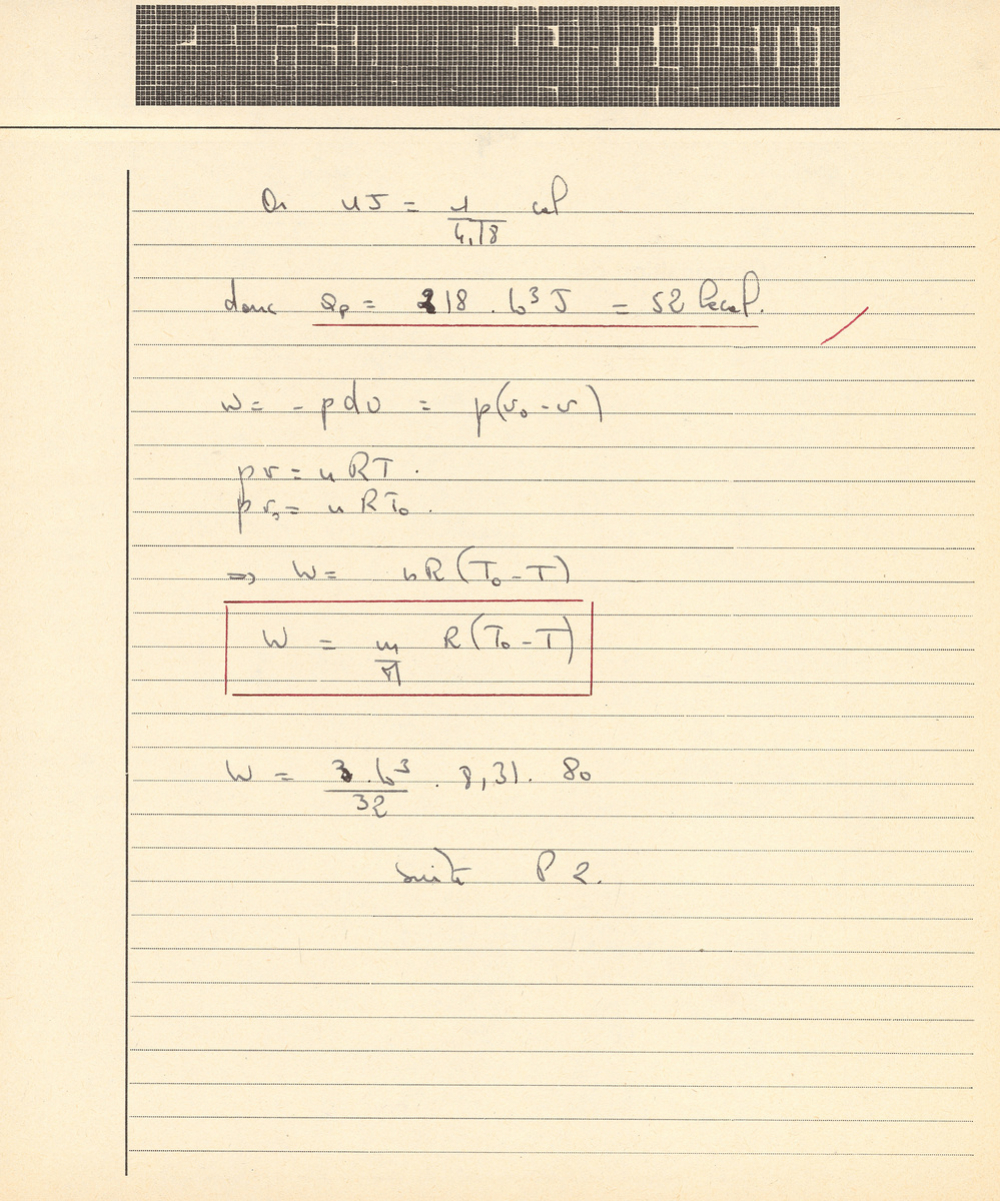 Or 1 J = 1/4,18 cal
donc Qp = 218 . 10³ J = 52 kcal.
W = - p dv = p(v₀ - v)
pv = n RT .
pv₀ = n RT₀ .
=> W = nR (T₀ - T)
W = m/M R (T₀ - T)
W = 3 . 10³/32 . 8,31 . 80
suite P 2.